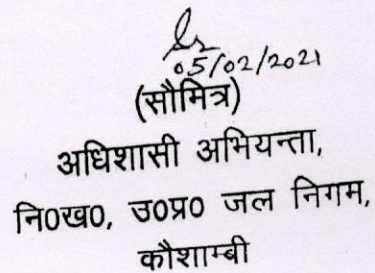 05/02/2021
(सौमित्र)
अधिशासी अभियन्ता,
नि0ख0, उ0प्र0 जल निगम,
कौशाम्बी